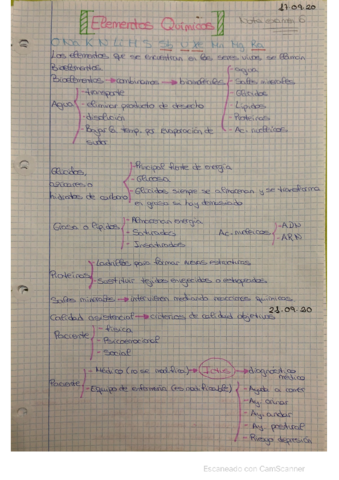 17.09.20
Elementos Químicos
O Na K N Li H S
Los elementos que se encuentran en los seres vivos se llaman
Bioelementos.
Bioelementos → combinamos → biomoléculas
- agua
- Sales minerales
- Glúcidos
- Lípidos
- Proteínas
- Ac. nucleicos
Agua
- transporte
- eliminar producto de desecho
- disolución
- Bajar la temp. por evaporación de
sudor.
Glúcidos,
azúcares o
hidratos de carbono
- Principal fuente de energía
- Glucosa
- Glúcidos siempre se almacenan y se transforma
en grasa si hay demasiado
Grasas o lípidos
- Almacenan energía
- Saturados
- Insaturados
Ac. nucleicos
- ADN
- ARN
Proteínas
- Ladrillos para formar nuevas estructuras
- Sustituir tejidos envejecidos o estropeados
Sales minerales → intervienen mediando reacciones químicas
21.09.20
Calidad asistencial → criterios de calidad objetivos
Paciente
- Física
- Psicoemocional
- Social
Paciente
- Médico (no se modifica) → Ictus → diagnóstico
médico
- Equipo de enfermería (es modificable)
- Ayuda a comer
- Ay. orinar
- Ay. andar
- Ay. postural
- Riesgo depresión
Escaneado con CamScanner